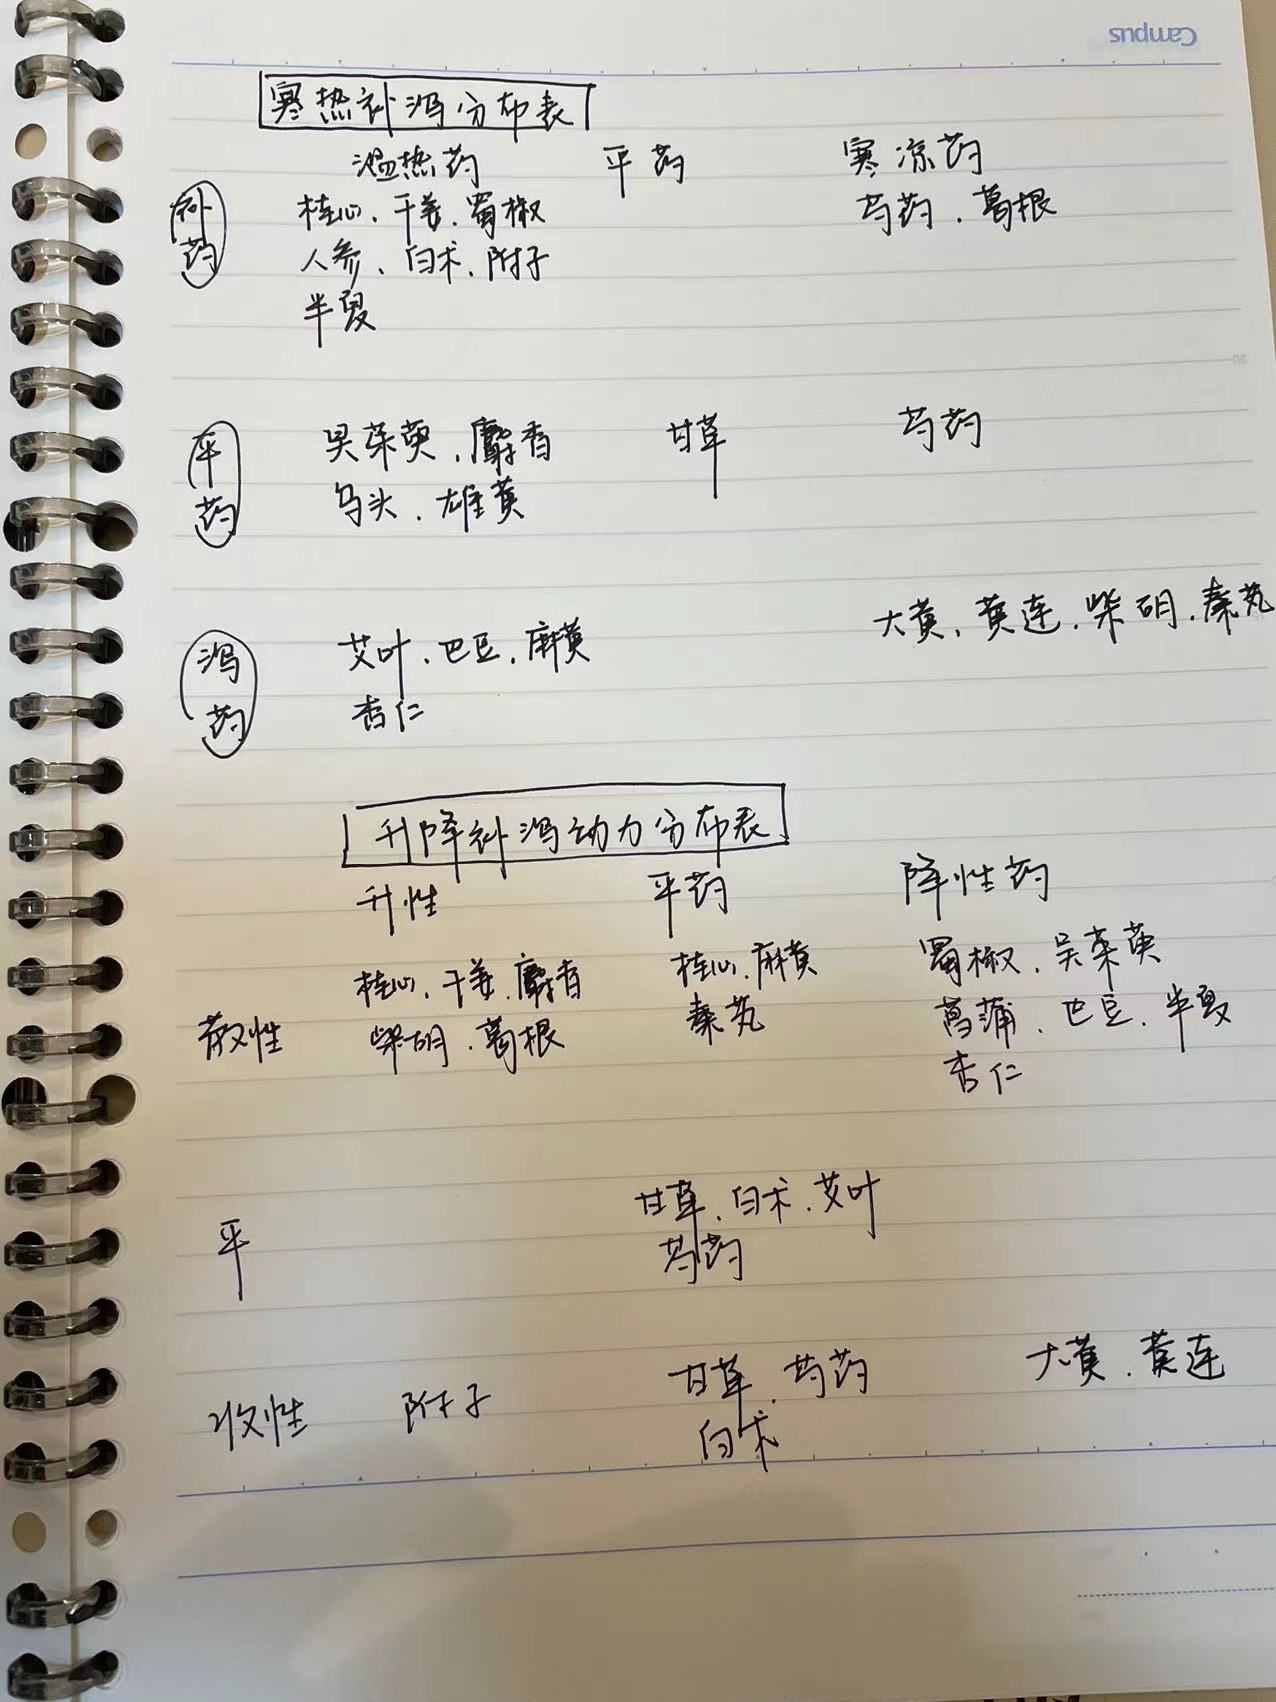 Campus
寒热补泻分布表
温热药 平药 寒凉药
补药 桂心、干姜、蜀椒 芍药、葛根
人参、白术、附子
半夏
20
平药 吴茱萸、麝香 甘草 芍药
乌头、雄黄
泻药 艾叶、巴豆、麻黄 大黄、黄连、柴胡、秦艽
杏仁
升降补泻动力分布表
升性 平药 降性药
散性 桂心、干姜、麝香 桂心、麻黄 蜀椒、吴茱萸
柴胡、葛根 秦艽 菖蒲、巴豆、半夏
杏仁
平 甘草、白术、艾叶
芍药
收性 附子 甘草、芍药 大黄、黄连
白术